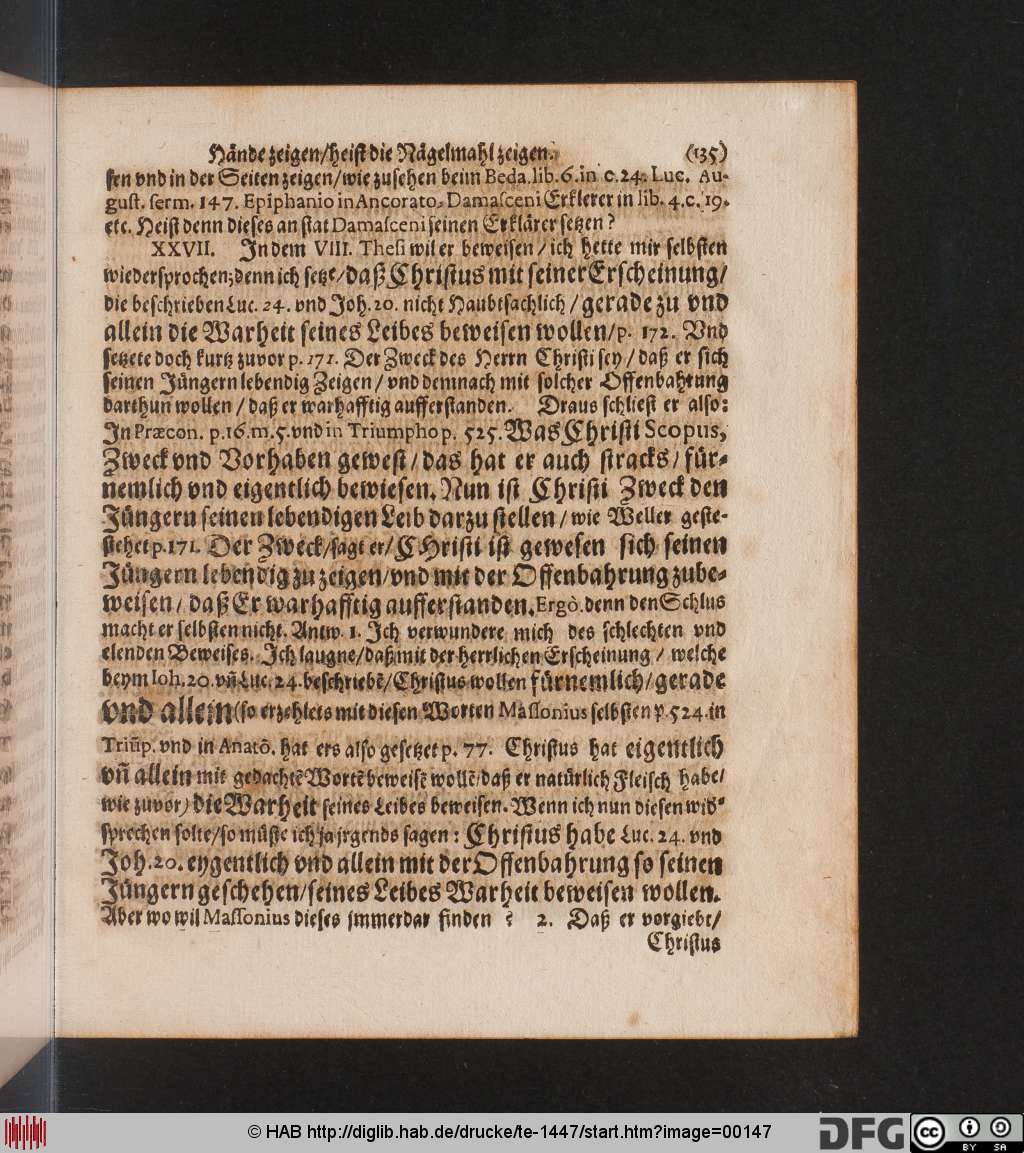 Hände zeigen/heist die Nägelmahl zeigen. (135)
sen vnd in der Seiten zeigen/wie zusehen beim Beda.lib.6.in c.24. Luc. Au-
gust. serm. 147. Epiphanio in Ancorato, Damasceni Erklerer in lib. 4.c. 19.
etc. Heist denn dieses an stat Damasceni seinen Erklärer setzen?
XXVII. In dem VIII. Thesi wil er beweisen/ich hette mir selbsten
wiedersprochen; denn ich setze/daß Christus mit seiner Erscheinung/
die beschrieben Luc. 24. vnd Joh.20. nicht Haubtsachlich/gerade zu vnd
allein die Warheit seines Leibes beweisen wollen/p. 172. Vnd
setzete doch kurtz zuvor p.171. Der Zweck des Herrn Christi sey/daß er sich
seinen Jüngern lebendig Zeigen/vnd demnach mit solcher Offenbahrung
darthun wollen/daß er warhafftig aufferstanden. Draus schliest er also:
In Præcon. p.16.m.5.vnd in Triumpho p. 525. Was Christi Scopus,
Zweck vnd Vorhaben gewest/das hat er auch stracks/für-
nemlich vnd eigentlich bewiesen. Nun ist Christi Zweck den
Jüngern seinen lebendigen Leib darzu stellen/wie Weller geste-
stehet p.171. Der Zweck/sagt er/CHristi ist gewesen sich seinen
Jüngern lebendig zu zeigen/vnd mit der Offenbahrung zube-
weisen/daß Er warhafftig aufferstanden. Ergò. denn den Schlus
macht er selbsten nicht. Antw. 1. Ich verwundere mich des schlechten vnd
elenden Beweises. Ich laugne/daß mit der herrlichen Erscheinung/welche
beym Ioh.20.vñ Luc. 24.beschriebē/Christus wollen fürnemlich/gerade
vnd allein (so erzehlets mit diesen Worten Massonius selbsten p.524.in
Triūp. vnd in Anatō. hat ers also gesetzet p. 77. Christus hat eigentlich
vñ allein mit gedachtē Wortē beweisē wollē/daß er natürlich Fleisch habe/
wie zuvor) die Warheit seines Leibes beweisen. Wenn ich nun diesen wid-
sprechen solte/so müste ich ja jrgends sagen: Christus habe Luc. 24. vnd
Joh.20. eygentlich vnd allein mit der Offenbahrung so seinen
Jüngern geschehen/seines Leibes Warheit beweisen wollen.
Aber wo wil Massonius dieses jmmerdar finden? 2. Daß er vorgiebt/
Christus
© HAB http://diglib.hab.de/drucke/te-1447/start.htm?image=00147
DFG
cc BY SA